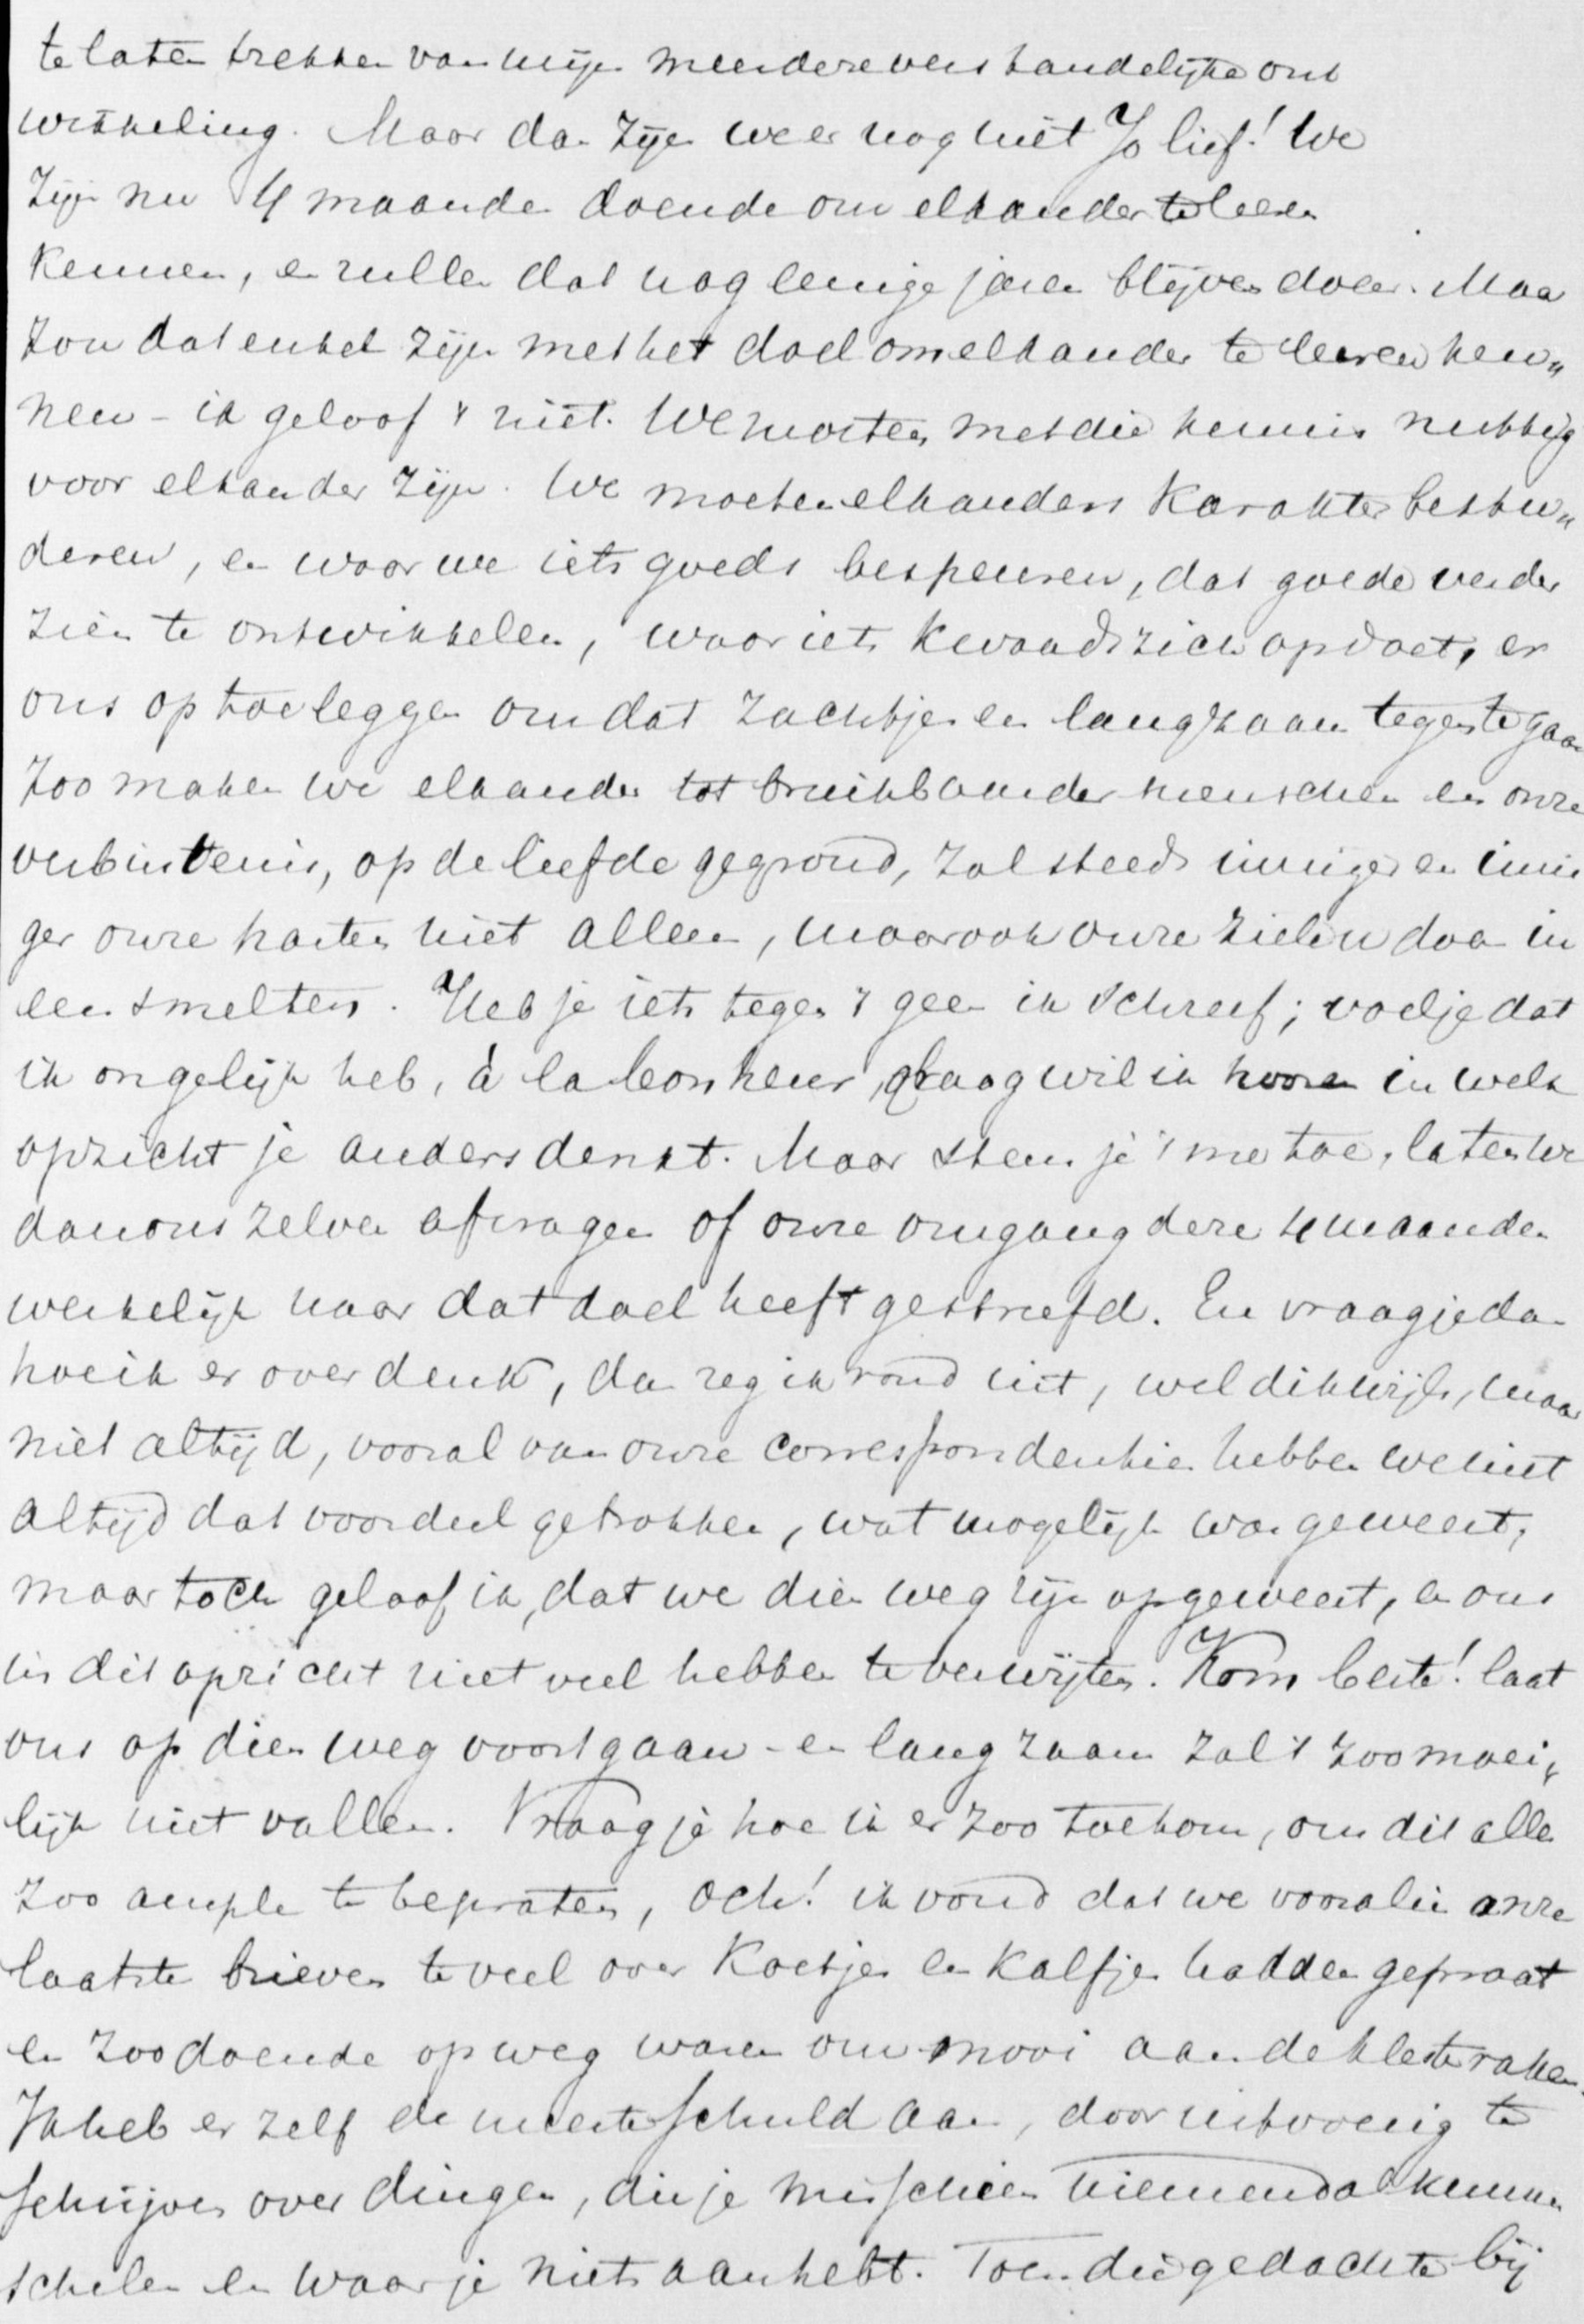 te laten trekken van mijn meerdere verstandelijke ont
wikkeling. Maar dan zijn we er nog niet Jo lief! We
zijn nu 4 maanden doende om elkander te leeren
kennen, en zullen dat nog eenige jaren blijven doen. Maar
zou dat enkel zijn met het doel om elkander te leeren ken„
nen – ik geloof 't niet. We moeten met die kennis nuttig
voor elkander zijn. We moeten elkanders karakter bestu„
deren, en waar we iets goeds bespeuren, dat goede verder
zien te ontwikkelen, waar iets kwaads zich opdoet, er
ons op toe leggen om dat zachtjes en langzaam tegen te gaan
Zoo maken we elkander tot bruikbaarder menschen en onze
verbintenis, op de liefde gegrond, zal steeds inniger en inni
ger onze harten niet alleen, maar ook onze zielen doen in
een smelten. Heb je iets tegen 't geen ik schreef; voel je dat
ik ongelijk heb, à la bonheur, graag wil ik hooren in welk
opzicht je anders denkt. Maar stem je 't me toe, laten we
dan ons zelven afvragen of onze omgang deze 4 maanden
werkelijk naar dat doel heeft gestreefd. En vraag je dan
hoe ik er over denk, dan zeg ik rond uit, wel dikwijls, maar
niet altijd, vooral van onze correspondentie hebben we niet
altijd dat voordeel getrokken, wat mogelijk was geweest,
maar toch geloof ik, dat we dien weg zijn op geweest, en ons
in dit opzicht niet veel hebben te verwijten. Kom beste! laat
ons op dien weg voortgaan – en langzaam zal 't zoo moei„
lijk niet vallen. Vraag je hoe ik er zoo toe kom, om dit alles
zoo ample te bepraten, och! ik vond dat we vooral in onze
laatste brieven te veel over koetjes en kalfjes hadden gepraat
en zoodoende op weg waren om mooi aan de klets te raken.
Ik heb er zelf de meeste schuld aan, door uitvoerig te
schrijven over dingen, die je misschien niemendal kunnen
schelen en waar je niets aan hebt. Toen die gedachte bij